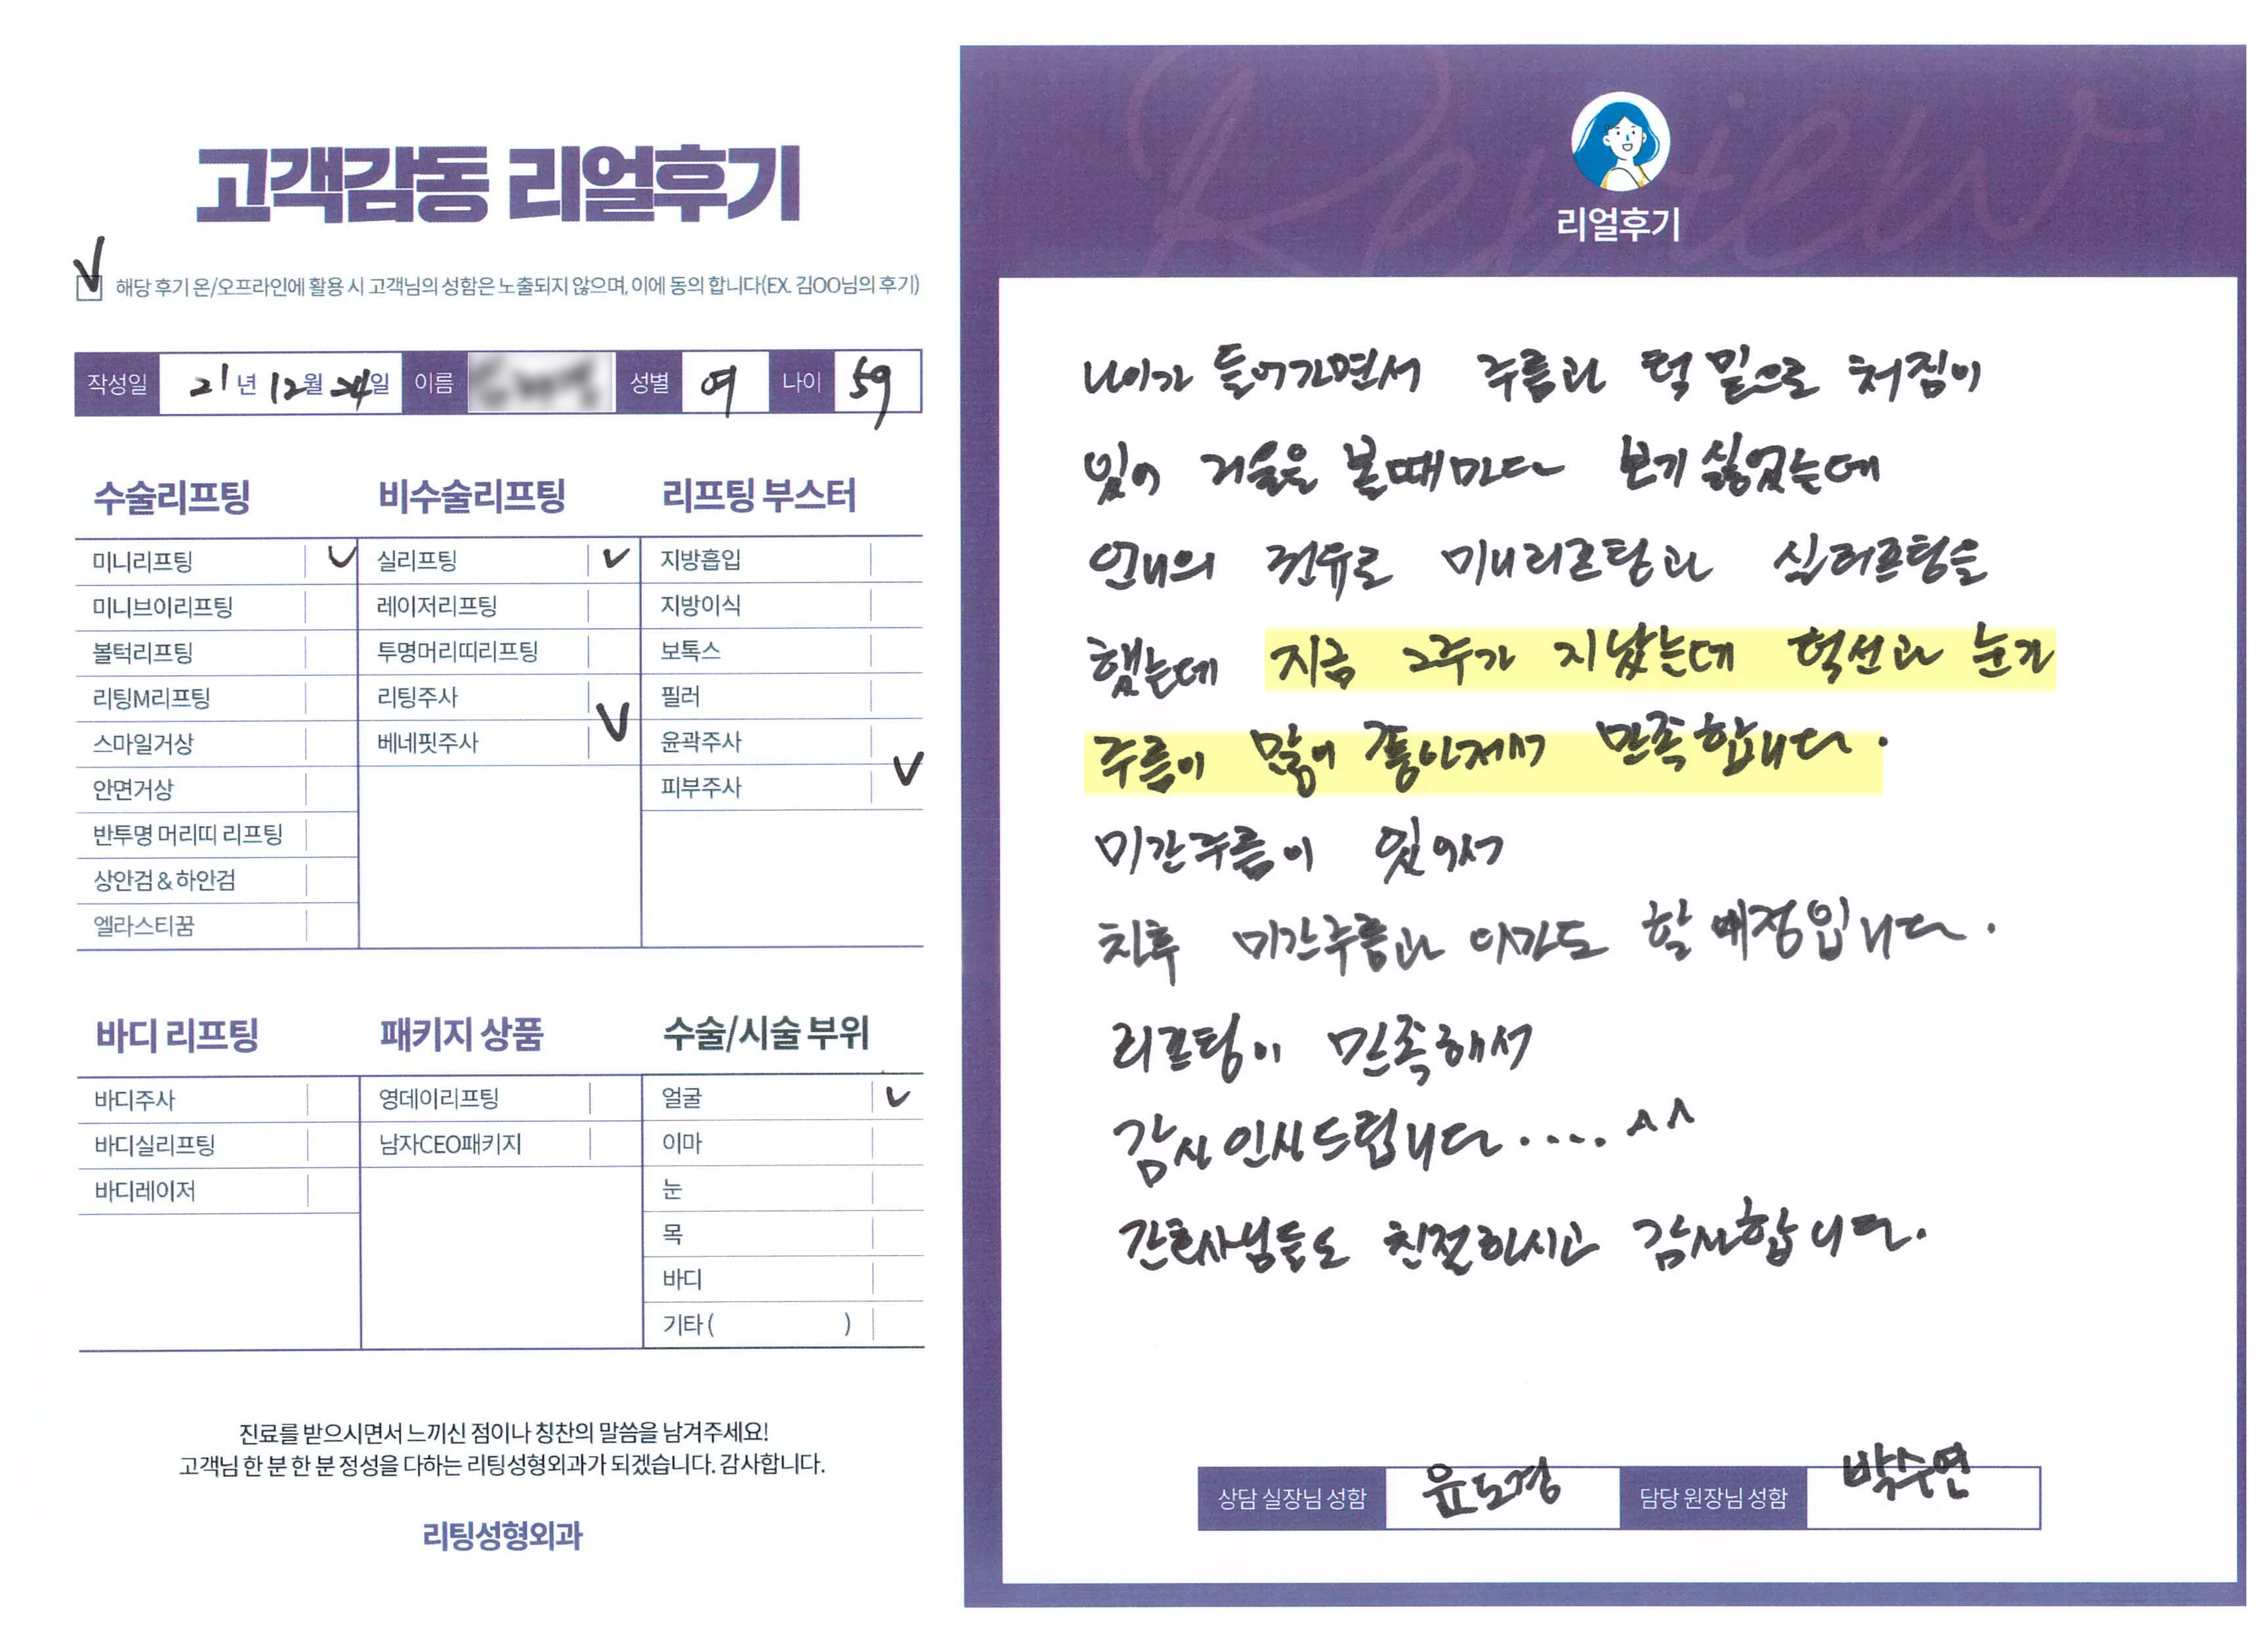 고객감동 리얼후기
해당 후기 온/오프라인에 활용 시 고객님의 성함은 노출되지 않으며, 이에 동의 합니다(EX. 김OO님의 후기)
작성일 21년 12월 24일 이름 성별 여 나이 59
수술리프팅
미니리프팅
미니브이리프팅
볼턱리프팅
리팅M리프팅
스마일거상
안면거상
반투명 머리띠 리프팅
상안검 & 하안검
엘라스티꿈
비수술리프팅
실리프팅
레이저리프팅
투명머리띠리프팅
리팅주사
베네핏주사
리프팅 부스터
지방흡입
지방이식
보톡스
필러
윤곽주사
피부주사
바디 리프팅
바디주사
바디실리프팅
바디레이저
패키지 상품
영데이리프팅
남자CEO패키지
수술/시술 부위
얼굴
이마
눈
목
바디
기타 ( )
진료를 받으시면서 느끼신 점이나 칭찬의 말씀을 남겨주세요!
고객님 한 분 한 분 정성을 다하는 리팅성형외과가 되겠습니다. 감사합니다.
리팅성형외과
Review
리얼후기
나이가 들어가면서 주름과 턱 밑으로 처짐이
있어 거울을 볼때마다 보기 싫었는데
언니의 권유로 미니리프팅과 실리프팅을
했는데 지금 2주가 지났는데 턱선과 눈가
주름이 많이 좋아져서 만족합니다.
미간주름이 있어서
차후 미간주름과 이마도 할 예정입니다.
리프팅이 만족해서
감사 인사드립니다..... ^^
간호사님들도 친절하시고 감사합니다.
상담 실장님 성함 윤도경 담당 원장님 성함 박수연